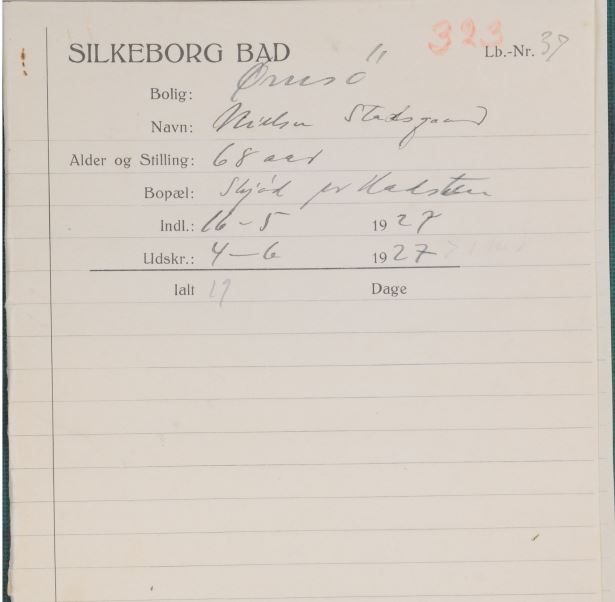 323
SILKEBORG BAD Lb.-Nr. 39
Bolig: Ørnsö II
Navn: Nielsen Stadsgaard
Alder og Stilling: 68 aar
Bopæl: Skjød pr Hadsten
Indl.: 16-5 1927
Udskr.: 4-6 1927
Ialt 19 Dage